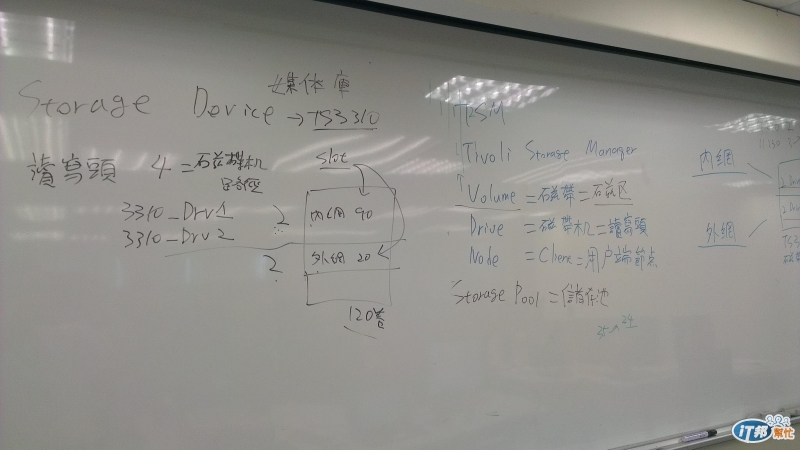 媒体庫
Storage Device → TS3310
讀寫頭 4 = 石磁帶机
slot
3310_Drv1 2
3310_Drv2
內網 90
2 外網 20
120卷
TSM
Tivoli Storage Manager
Volume = 磁帶 = 磁區
Drive = 磁帶机 = 讀寫頭
Node = Client = 用户端節点
Storage Pool = 儲存池
內網
外網
iT邦幫忙